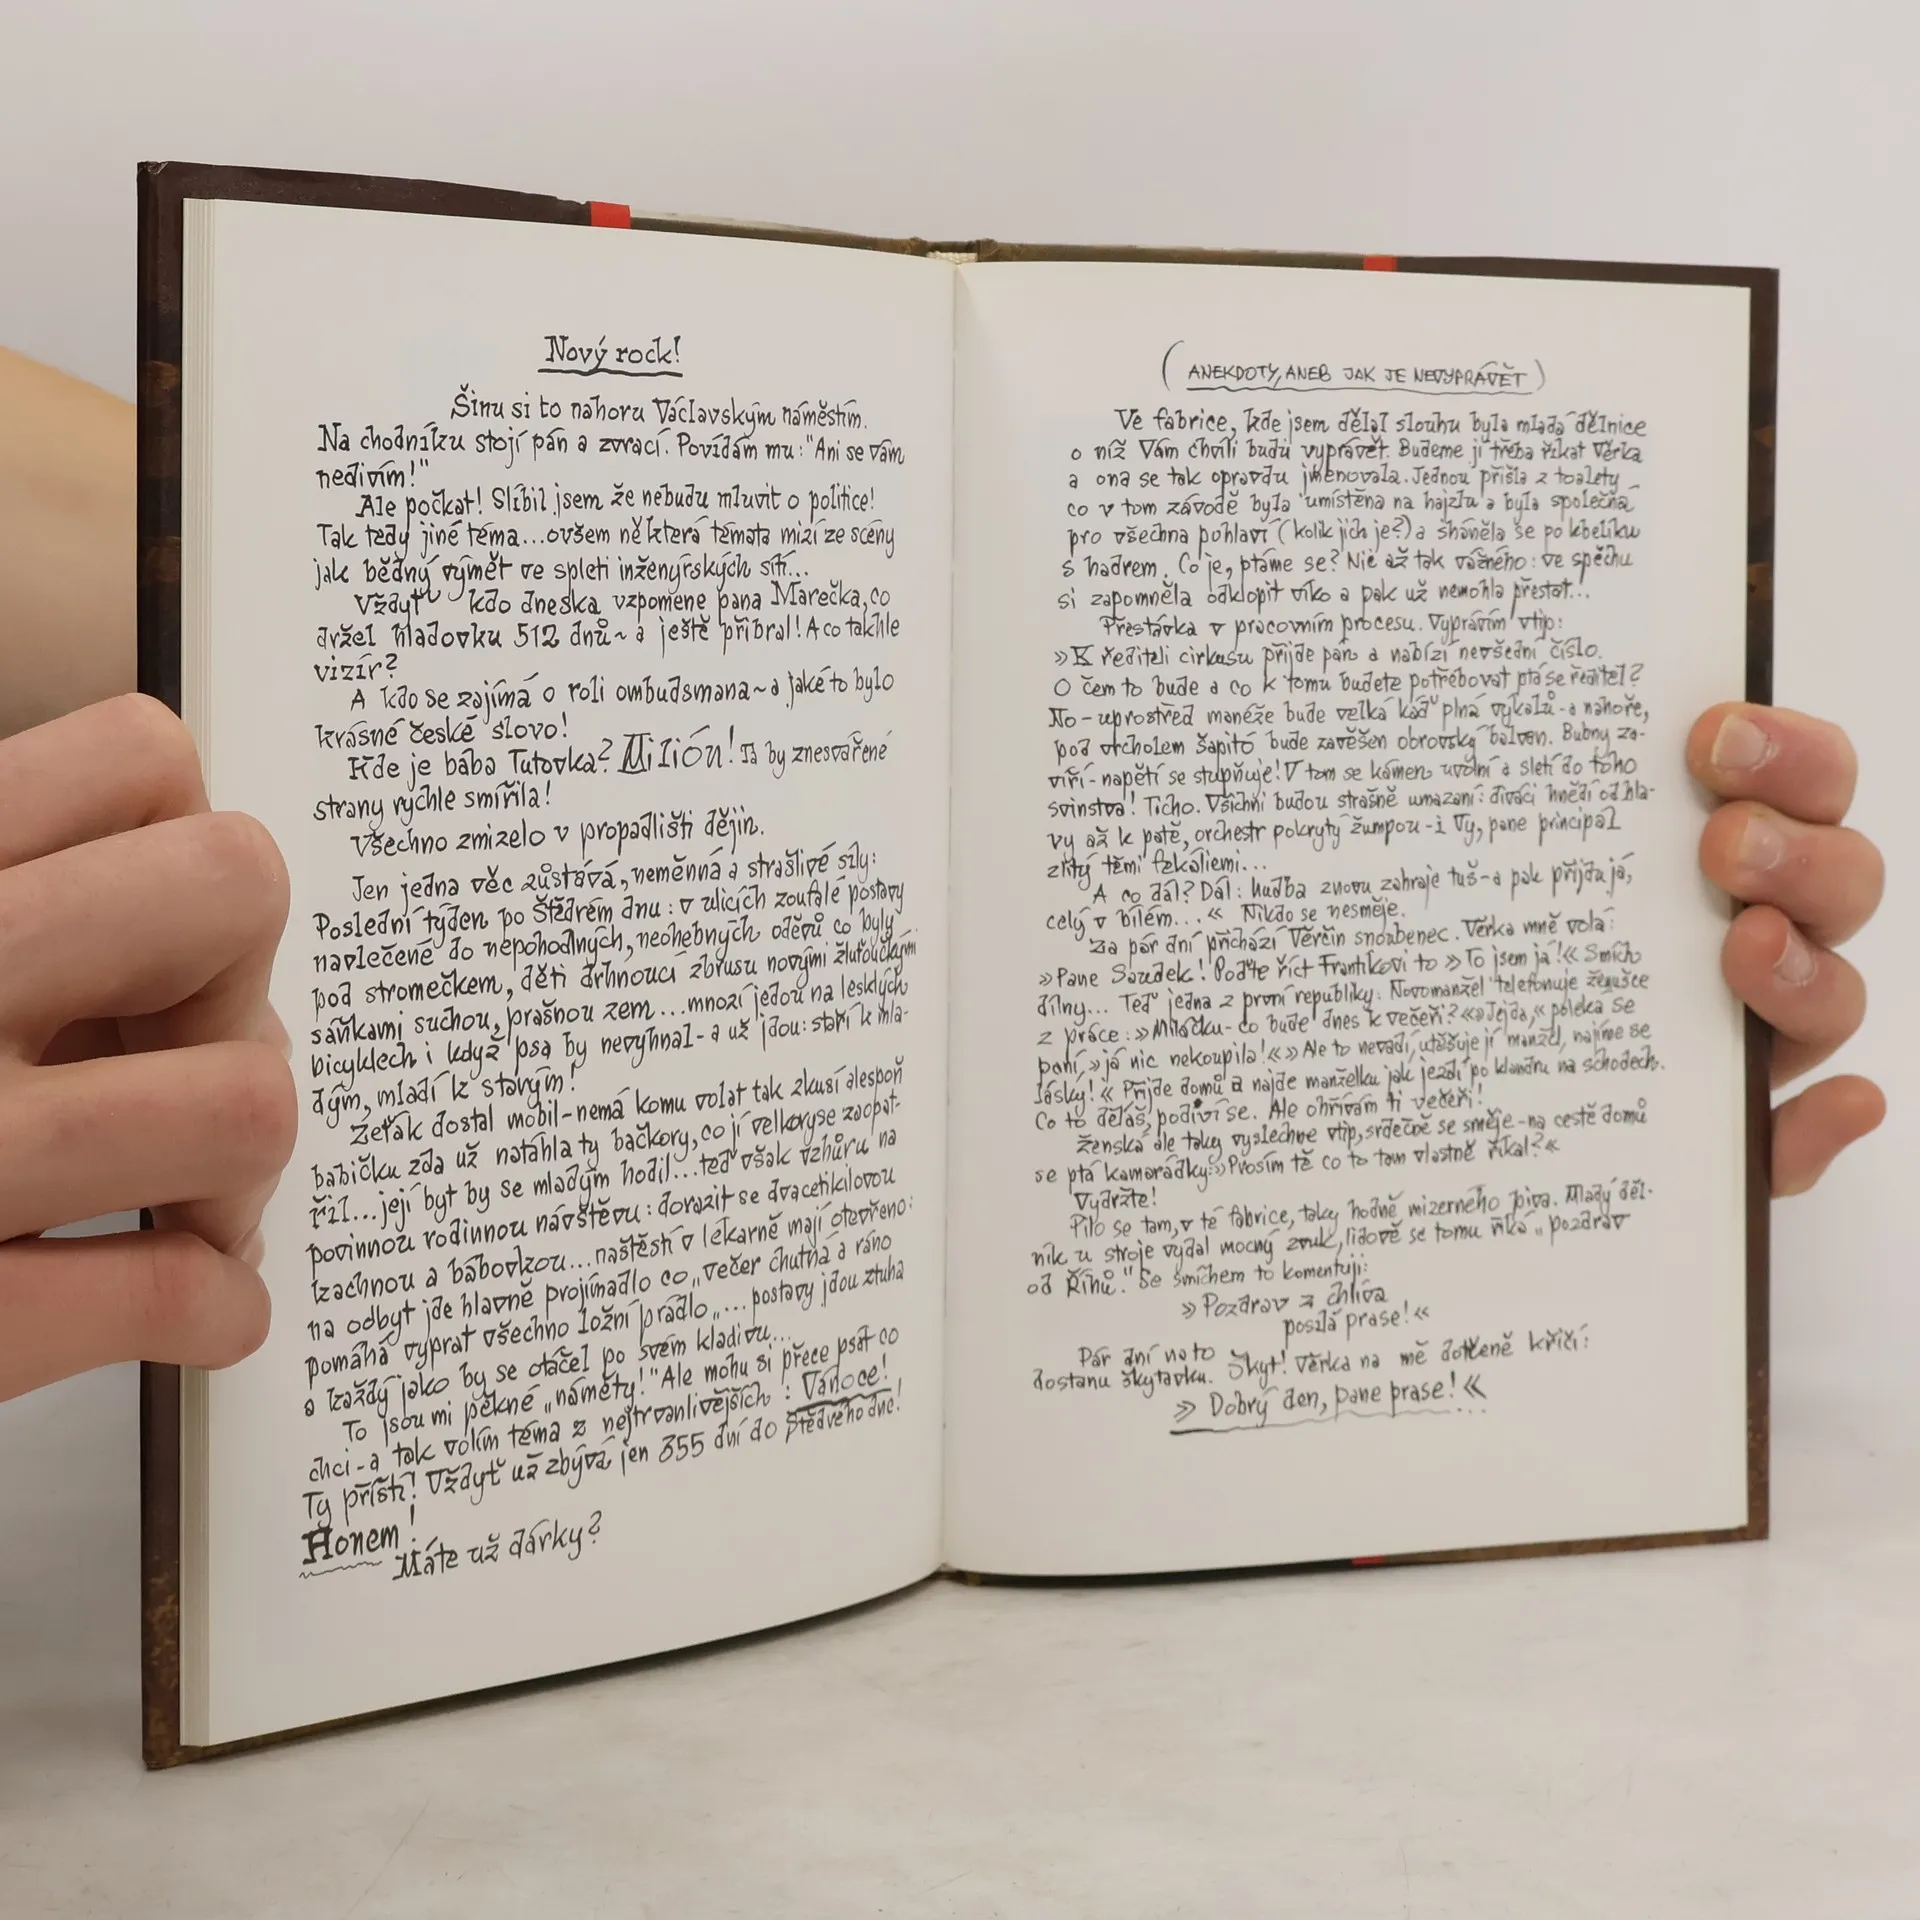 Nový rock!
Šinu si to nahoru Václavským náměstím.
Na chodníku stojí pán a zvrací. Povídám mu: "Ani se vám
nedivím!"
Ale počkat! Slíbil jsem že nebudu mluvit o politice!
Tak tedy jiné téma...ovšem některá témata mizí ze scény
jak bědný výmět ve spleti inženýrských sítí...
Vždyť kdo dneska vzpomene pana Marečka, co
držel hladovku 512 dnů~a ještě přibral! A co takhle
vizír?
A kdo se zajímá o roli ombudsmana~a jaké to bylo
krásné české slovo!
Kde je bába Tutovka? Milión! Ta by znesvářené
strany rychle smířila!
Všechno zmizelo v propadlišti dějin.
Jen jedna věc zůstává, neměnná a strašlivé síly:
Poslední týden po Štědrém dnu: v ulicích zoufalé postavy
navlečené do nepohodlných, neohebných oděvů co byly
pod stromečkem, děti drhnoucí zbrusu novými žluťoučkými
sáňkami suchou, prašnou zem...mnozí jedou na lesklých
bicyklech i když psa by nevyhnal-a už jdou: staří k mla-
dým, mladí k starým!
Zeťák dostal mobil-nemá komu volat tak zkusí alespoň
babičku zda už natáhla ty bačkory, co jí velkoryse zaopat-
řil...její byt by se mladým hodil...teď však vzhůru na
povinnou rodinnou návštěvu: dorazit se dvacetikilovou
kachnou a bábovkou...naštěstí v lékárně mají otevřeno:
na odbyt jde hlavně projímadlo co „večer chutná a ráno
pomáhá vyprat všechno ložní prádlo„... postavy jdou ztuha
a každý jako by se otáčel po svém kladivu...
To jsou mi pěkné „náměty!" Ale mohu si přece psát co
chci-a tak volím téma z nejtrvanlivějších: Vánoce!
Ty příští! Vždyť už zbývá jen 355 dní do Štědrého dne!
Honem!
Máte už dárky?
(ANEKDOTY, ANEB JAK JE NEVYPRÁVĚT)
Ve fabrice, kde jsem dělal slouhu byla mladá dělnice
o níž Vám chvíli budu vyprávět. Budeme jí třeba říkat Věrka
a ona se tak opravdu jmenovala. Jednou přišla z toalety
co v tom závodě byla umístěna na hajzlu a byla společná
pro všechna pohlaví (kolik jich je?) a sháněla se po kbelíku
s hadrem. Co je, ptáme se? Nic až tak vážného: ve spěchu
si zapomněla odklopit víko a pak už nemohla přestat...
Přestávka v pracovním procesu. Vyprávím vtip:
»K řediteli cirkusu přijde pán a nabízí nevšední číslo.
O čem to bude a co k tomu budete potřebovat ptá se ředitel?
No-uprostřed manéže bude velká káď plná výkalů-a nahoře,
pod vrcholem šapitó bude zavěšen obrovský balvan. Bubny za-
víří-napětí se stupňuje! V tom se kámen uvolní a sletí do toho
svinstva! Ticho. Všichni budou strašně umazaní: diváci hnědí od hla-
vy až k patě, orchestr pokrytý žumpou-i Vy, pane principál
zlitý těmi fekáliemi...
A co dál? Dál: hudba znovu zahraje tuš-a pak přijdu já,
celý v bílém...« Nikdo se nesměje.
Za pár dní přichází Věrčin snoubenec. Věrka mně volá:
»Pane Saudek! Poďte říct Frantíkovi to »To jsem já!« Smích
dílny... Teď jedna z první republiky: Novomanžel telefonuje žeňušce
z práce: »Miláčku-co bude dnes k večeři?«»Jejda,« poleká se
paní, »já nic nekoupila!«»Ale to nevadí, utěšuje jí manžel, najíme se
lásky!« Přijde domů a najde manželku jak jezdí po klandru na schodech.
Co to děláš, podiví se. Ale ohřívám ti večeři!
Ženská ale taky vyslechne vtip, srdečně se směje-na cestě domů
se ptá kamarádky:»Prosím tě co to tam vlastně říkal?«
Vydržte!
Pilo se tam, v té fabrice, taky hodně mizerného piva. Mladý děl-
ník u stroje vydal mocný zvuk, lidově se tomu říká „pozdrav
od Říhů." Se smíchem to komentuji:
»Pozdrav z chlíva
posílá prase!«
Pár dní na to
dostanu škytavku. Škyt! Věrka na mě dotčeně křičí:
»Dobrý den, pane prase!«